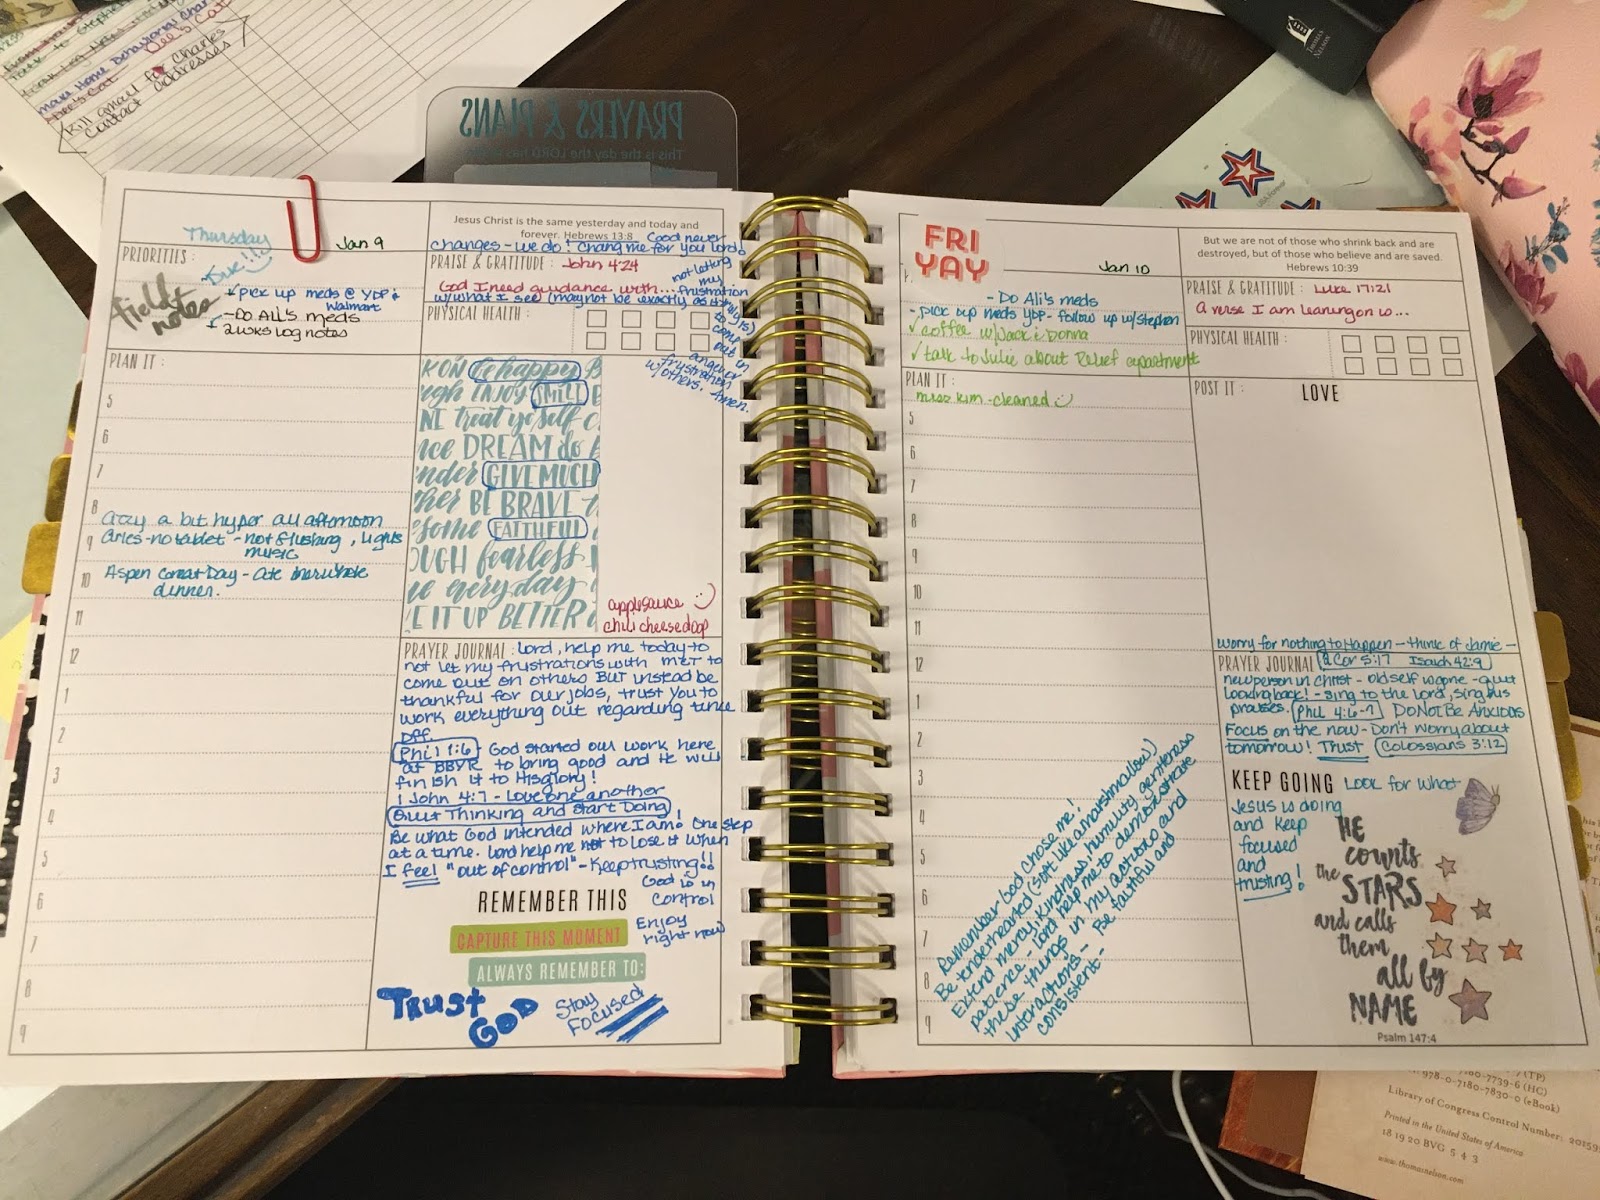 make Home Behavioral Char
Dee's Cat
Kill gmail for Charles
Contact addresses
PRAYERS & PLANS
This is the day the LORD has
THOMAS NELSON
Thursday
Jan 9
Jesus Christ is the same yesterday and today and
forever. Hebrews 13:8
Good never
changes - we do! Chang me for you Lord!
PRIORITIES :
- Due!!!
field notes
pick up meds @ YDP &
Walmart
- Do Ali's meds
2 wks log notes
PRAISE & GRATITUDE : John 4:24
God I need guidance with...
w/what I see (may not be exactly as
not letting
my
frustration
come
out in
anger or
frustration
w/others. Amen.
PHYSICAL HEALTH :
PLAN IT :
5
6
7
8
Ozzy a bit hyper all afternoon
9
Aries - no tablet - not flushing, lights
music
10
Aspen Great Day - ate her whole
dinner.
11
12
1
2
3
4
5
6
7
8
9
K ON be happy B
ugh ENJOY SMILE
NE treat yo self c
nce DREAM do
nder GIVE MUCH
ther BE BRAVE
some FAITHFUL
OUGH fearless
ve everyday
E IT UP BETTER
applesauce
chili cheese dog
PRAYER JOURNAL : Lord, help me today to
not let my frustrations with MET to
come out on others BUT instead be
thankful for our jobs, trust you to
work everything out regarding time
off.
Phil 1:6 God started our work here
at BBYR to bring good and He will
finish it to His glory!
1 John 4:7 - Love one another
Quit Thinking and Start Doing!
Be what God intended where I am! One step
at a time. Lord help me not to lose it when
I feel "out of control" - Keep trusting!!
God is in
control
REMEMBER THIS
Enjoy
right now
CAPTURE THIS MOMENT
ALWAYS REMEMBER TO:
TRUST GOD
Stay
Focused
FRI
YAY
Jan 10
But we are not of those who shrink back and are
destroyed, but of those who believe and are saved.
Hebrews 10:39
- Do Ali's meds
- pick up meds YDP - follow up w/Stephen
✓ coffee w/Jack & Donna
✓ talk to Julie about Relief apartment
PRAISE & GRATITUDE : Luke 17:21
A verse I am leaning on is...
PHYSICAL HEALTH :
PLAN IT :
miss kim - cleaned
5
6
7
8
9
10
11
12
1
2
3
4
5
6
7
8
9
Remember God chose me!
Be tenderhearted (soft like a marshmallow)
Extend mercy, kindness, humility, gentleness
patience - Lord help me to demonstrate
these things in my actions and
interactions - Be faithful and
consistent -
POST IT : LOVE
worry for nothing to Happen - think of Jamie -
PRAYER JOURNAL 2 Cor 5:17 Isaiah 42:9
new person in Christ - old self is gone - quit
looking back! - sing to the Lord, sing his
praises. Phil 4:6-7 DO NOT BE ANXIOUS
Focus on the now - Don't worry about
tomorrow! Trust Colossians 3:12
KEEP GOING Look for what
Jesus is doing
and keep
focused
and
trusting!
HE
counts
the STARS
and calls
them
all by
NAME
Psalm 147:4
(TP)
7180-7739-6 (HC)
978-0-7180-7830-0 (eBook)
Library of Congress Control Number:
Printed in the United States of America
18 19 20 BVG 5 4 3
www.thomasnelson.com